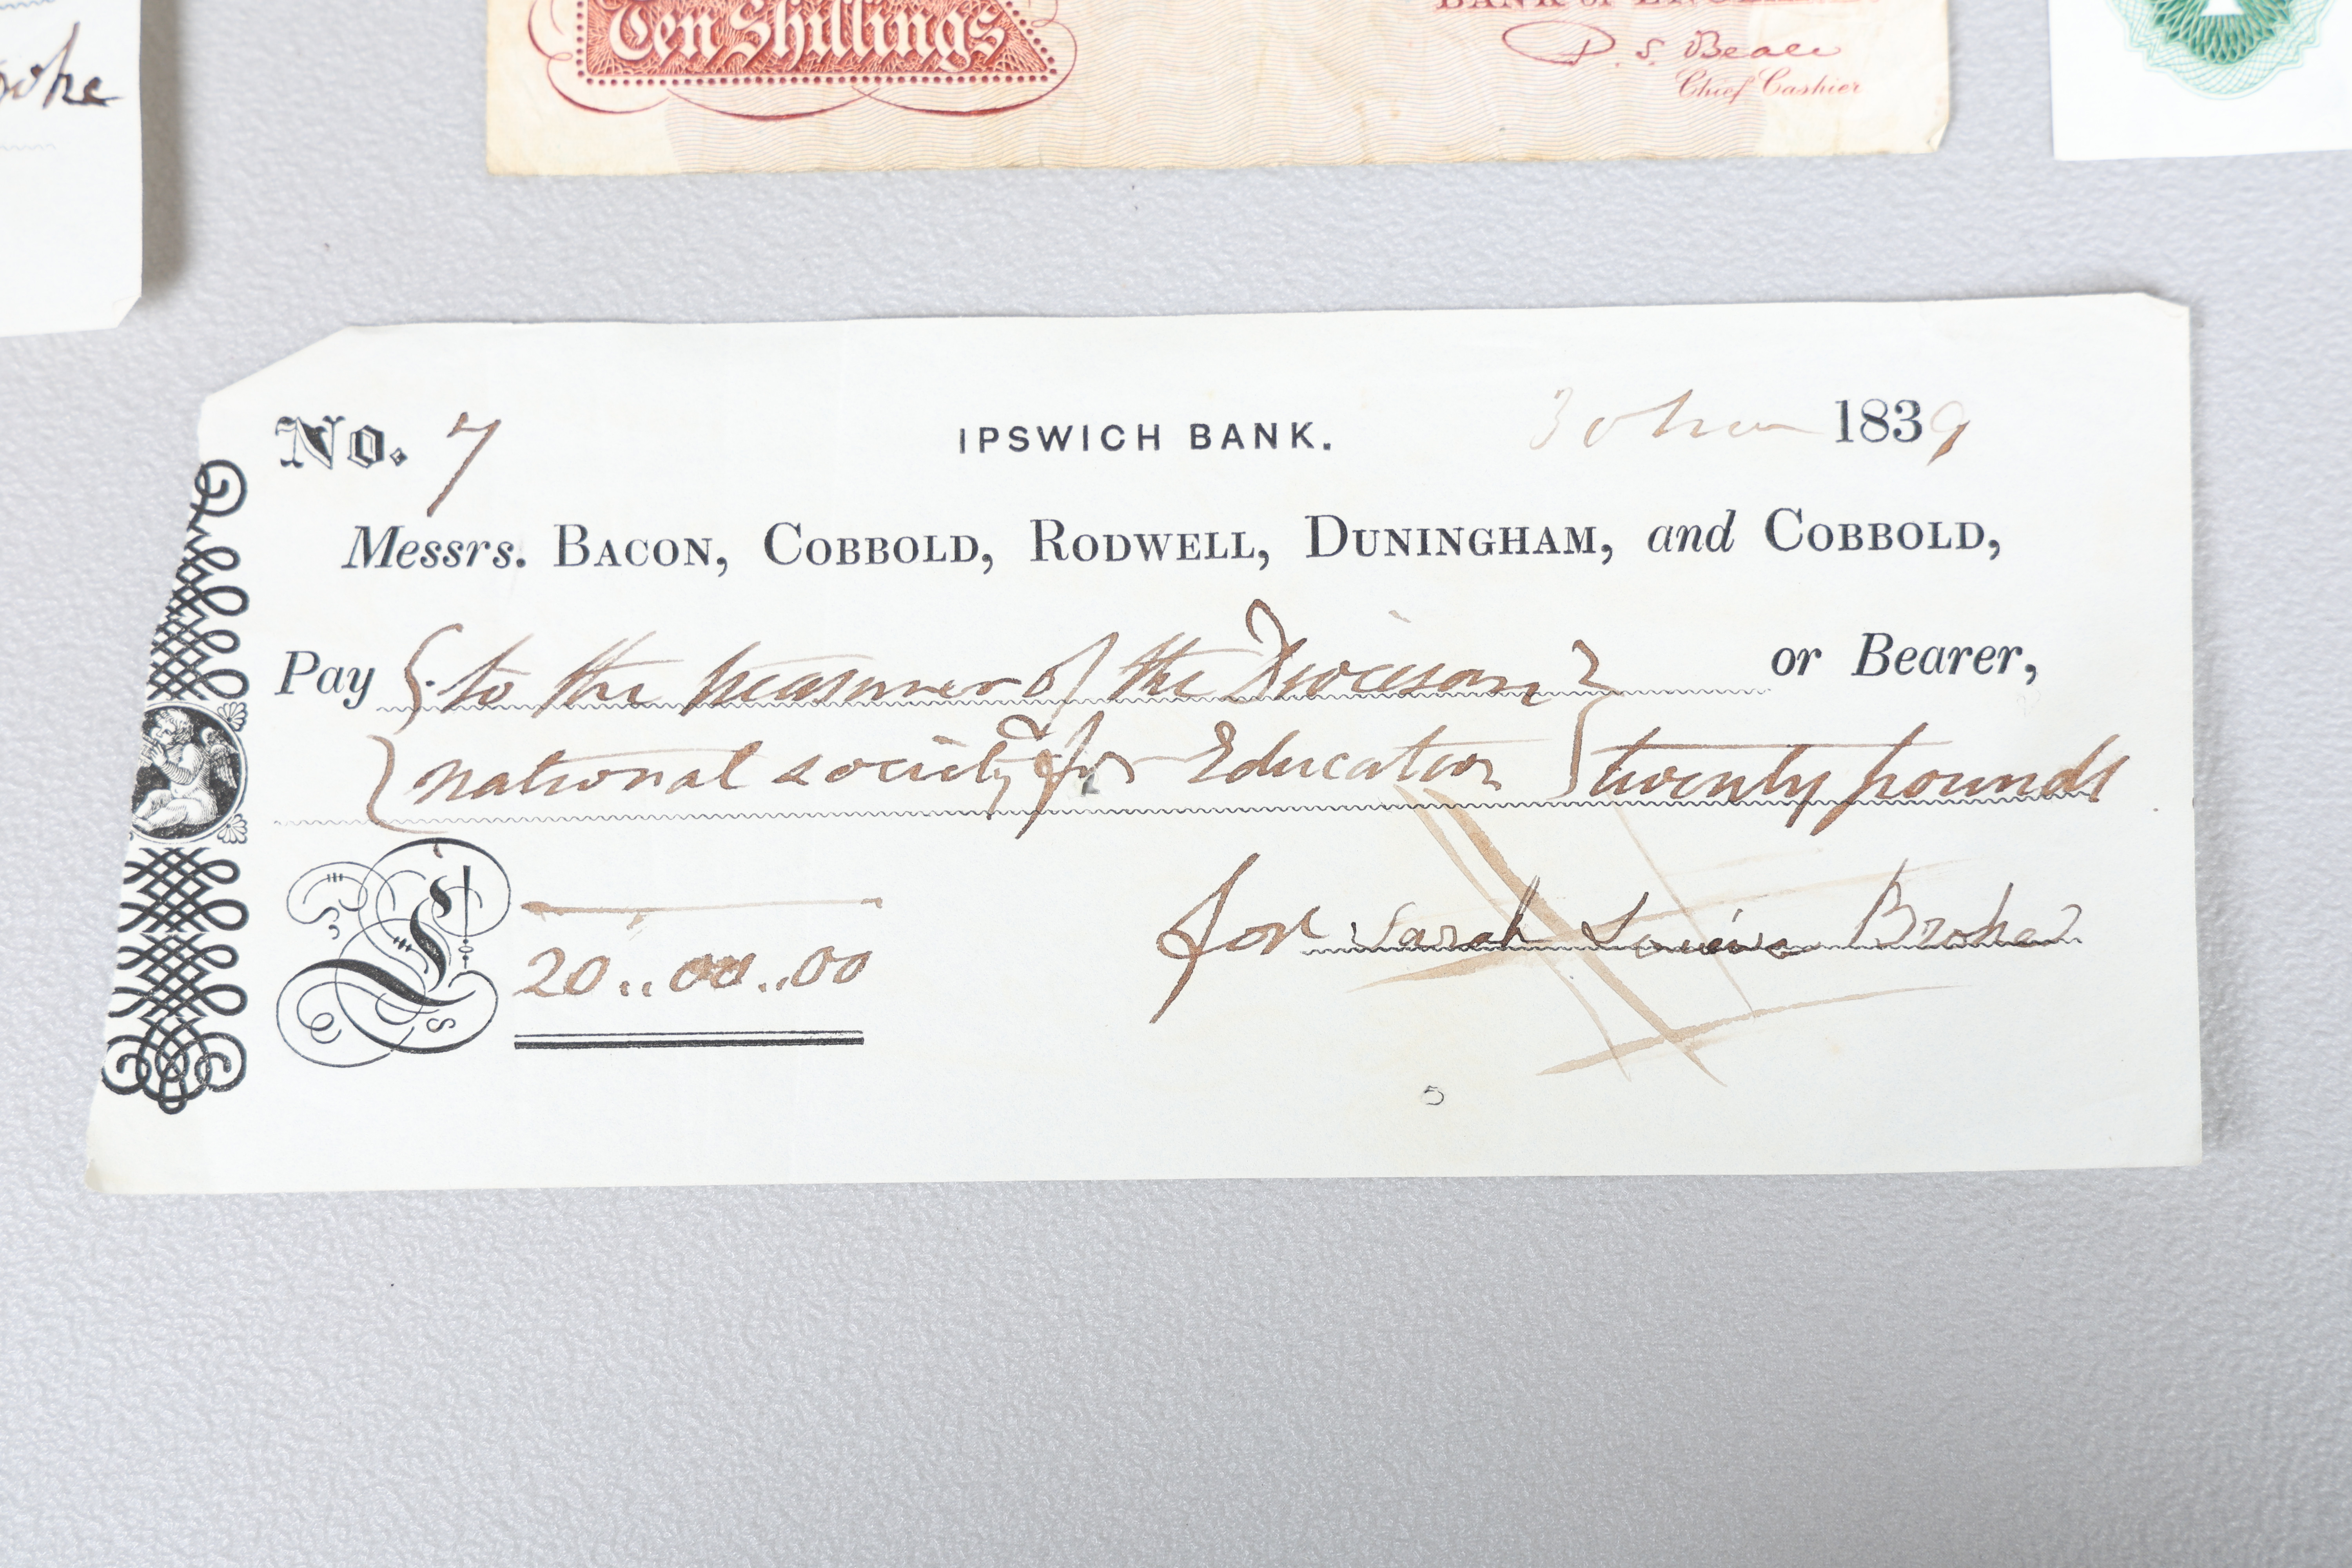 Ten Shillings
BANK OF ENGLAND
Chief Cashier
No. 7 IPSWICH BANK. 30 1839
Messrs. BACON, COBBOLD, RODWELL, DUNINGHAM, and COBBOLD,
Pay { to the treasurer of the Diocesan } or Bearer,
{ national society for Education } twenty pounds
£ 20..00..00 for Sarah Louisa Broke